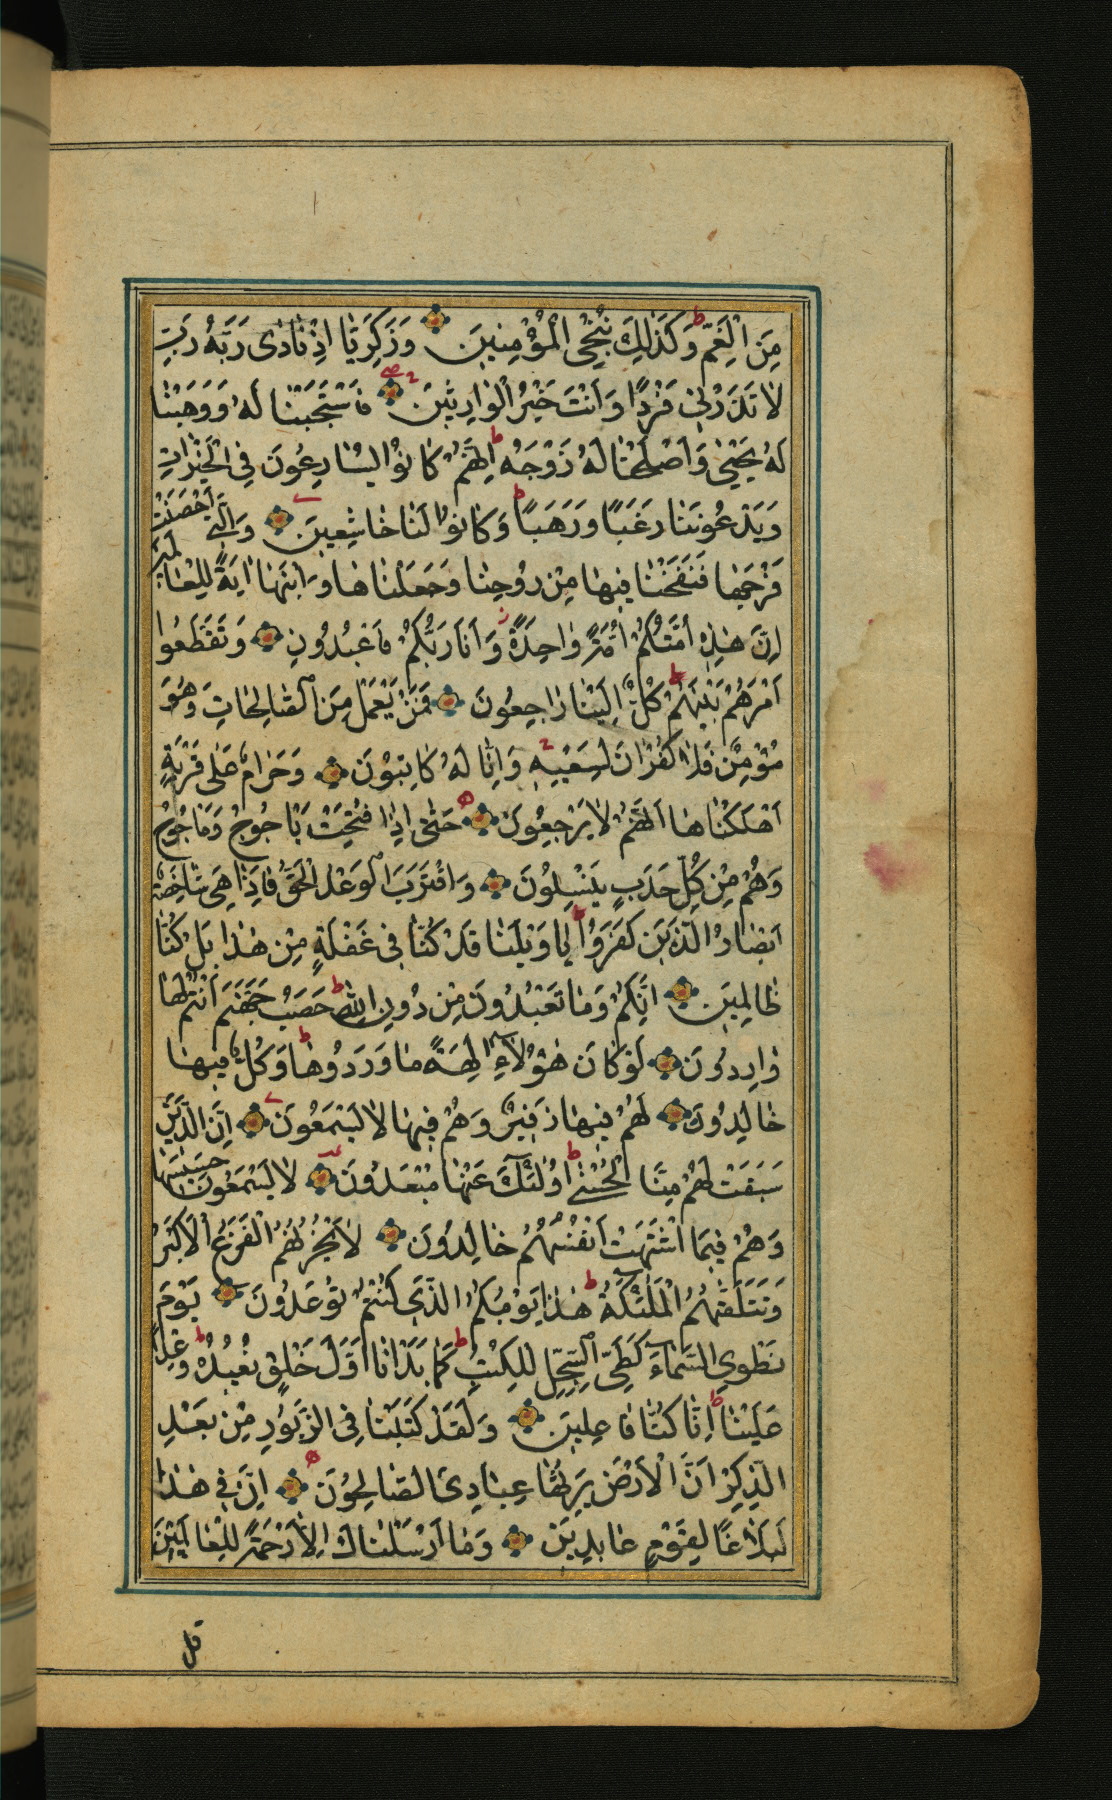 مِنَ الْغَمِّ وَكَذٰلِكَ نُنْجِي الْمُؤْمِنِينَ وَزَكَرِيَّا اِذْ نَادٰى رَبَّهُ رَبِّ
لَا تَذَرْنِي فَرْدًا وَاَنْتَ خَيْرُ الْوَارِثِينَ فَاسْتَجَبْنَا لَهُ وَوَهَبْنَا
لَهُ يَحْيٰى وَاَصْلَحْنَا لَهُ زَوْجَهُ اِنَّهُمْ كَانُوْا يُسَارِعُونَ فِي الْخَيْرَاتِ
وَيَدْعُونَنَا رَغَبًا وَرَهَبًا وَكَانُوا لَنَا خَاشِعِينَ وَالَّتِي اَحْصَنَتْ
فَرْجَهَا فَنَفَخْنَا فِيهَا مِنْ رُوحِنَا وَجَعَلْنَاهَا وَابْنَهَا اٰيَةً لِلْعَالَمِينَ
اِنَّ هٰذِهِ اُمَّتُكُمْ اُمَّةً وَاحِدَةً وَاَنَا رَبُّكُمْ فَاعْبُدُونِ وَتَقَطَّعُوا
اَمْرَهُمْ بَيْنَهُمْ كُلٌّ اِلَيْنَا رَاجِعُونَ فَمَنْ يَعْمَلْ مِنَ الصَّالِحَاتِ وَهُوَ
مُؤْمِنٌ فَلَا كُفْرَانَ لِسَعْيِهِ وَاِنَّا لَهُ كَاتِبُونَ وَحَرَامٌ عَلٰى قَرْيَةٍ
اَهْلَكْنَاهَا اَنَّهُمْ لَا يَرْجِعُونَ حَتّٰى اِذَا فُتِحَتْ يَاجُوجُ وَمَاجُوجُ
وَهُمْ مِنْ كُلِّ حَدَبٍ يَنْسِلُونَ وَاقْتَرَبَ الْوَعْدُ الْحَقُّ فَاِذَا هِيَ شَاخِصَةٌ
اَبْصَارُ الَّذِينَ كَفَرُوا يَا وَيْلَنَا قَدْ كُنَّا فِي غَفْلَةٍ مِنْ هٰذَا بَلْ كُنَّا
ظَالِمِينَ اِنَّكُمْ وَمَا تَعْبُدُونَ مِنْ دُونِ اللّٰهِ حَصَبُ جَهَنَّمَ اَنْتُمْ لَهَا
وَارِدُونَ لَوْ كَانَ هٰؤُلَاءِ اٰلِهَةً مَا وَرَدُوهَا وَكُلٌّ فِيهَا
خَالِدُونَ لَهُمْ فِيهَا زَفِيرٌ وَهُمْ فِيهَا لَا يَسْمَعُونَ اِنَّ الَّذِينَ
سَبَقَتْ لَهُمْ مِنَّا الْحُسْنٰى اُولٰئِكَ عَنْهَا مُبْعَدُونَ لَا يَسْمَعُونَ حَسِيسَهَا
وَهُمْ فِيمَا اشْتَهَتْ اَنْفُسُهُمْ خَالِدُونَ لَا يَحْزُنُهُمُ الْفَزَعُ الْاَكْبَرُ
وَتَتَلَقّٰهُمُ الْمَلٰئِكَةُ هٰذَا يَوْمُكُمُ الَّذِي كُنْتُمْ تُوعَدُونَ يَوْمَ
نَطْوِي السَّمَاءَ كَطَيِّ السِّجِلِّ لِلْكُتُبِ كَمَا بَدَاْنَا اَوَّلَ خَلْقٍ نُعِيدُهُ وَعْدًا
عَلَيْنَا اِنَّا كُنَّا فَاعِلِينَ وَلَقَدْ كَتَبْنَا فِي الزَّبُورِ مِنْ بَعْدِ
الذِّكْرِ اَنَّ الْاَرْضَ يَرِثُهَا عِبَادِيَ الصَّالِحُونَ اِنَّ فِي هٰذَا
لَبَلَاغًا لِقَوْمٍ عَابِدِينَ وَمَا اَرْسَلْنَاكَ اِلَّا رَحْمَةً لِلْعَالَمِينَ
قل